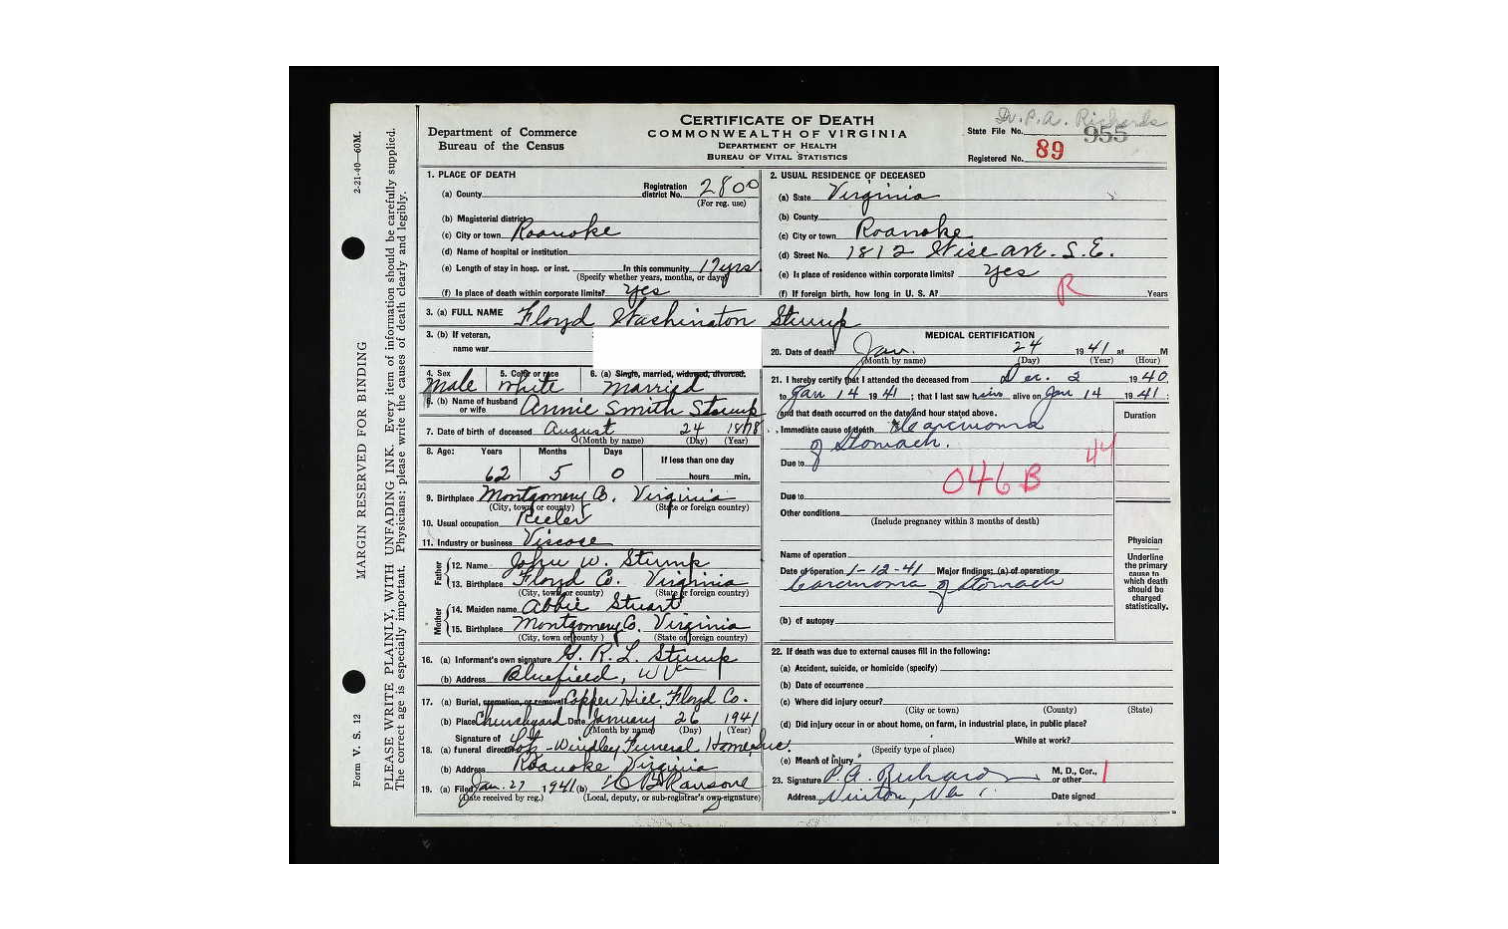 Dr. P. A. Richards
CERTIFICATE OF DEATH
COMMONWEALTH OF VIRGINIA
DEPARTMENT OF HEALTH
BUREAU OF VITAL STATISTICS
Department of Commerce
Bureau of the Census
State File No. 955
Registered No. 89
2-21-40—60M.
MARGIN RESERVED FOR BINDING
Form V. S. 12
PLEASE WRITE PLAINLY, WITH UNFADING INK. Every item of information should be carefully supplied.
The correct age is especially important. Physicians: please write the causes of death clearly and legibly.
1. PLACE OF DEATH
(a) County
Registration district No. 2800
(For reg. use)
(b) Magisterial district
(c) City or town Roanoke
(d) Name of hospital or institution
(e) Length of stay in hosp. or inst. In this community 17 yrs.
(Specify whether years, months, or days)
(f) Is place of death within corporate limits? Yes
2. USUAL RESIDENCE OF DECEASED
(a) State Virginia
(b) County
(c) City or town Roanoke
(d) Street No. 1812 Wise ave. S.E.
(e) Is place of residence within corporate limits? Yes
R
(f) If foreign birth, how long in U. S. A.? Years
3. (a) FULL NAME Floyd Washington Stump
3. (b) If veteran,
name war
4. Sex Male
5. Color or race White
6. (a) Single, married, widowed, divorced. Married
6. (b) Name of husband or wife Annie Smith Stump
7. Date of birth of deceased August 24 1878
(Month by name) (Day) (Year)
8. Age: Years Months Days If less than one day
62 5 0 hours min.
9. Birthplace Montgomery Co. Virginia
(City, town or county) (State or foreign country)
10. Usual occupation Reeler
11. Industry or business Viscose
Father
12. Name John W. Stump
13. Birthplace Floyd Co. Virginia
(City, town or county) (State or foreign country)
Mother
14. Maiden name Abbie Stuart
15. Birthplace Montgomery Co. Virginia
(City, town or county) (State or foreign country)
16. (a) Informant's own signature G. R. L. Stump
(b) Address Bluefield, W Va
17. (a) Burial, cremation, or removal Copper Hill, Floyd Co.
(b) Place Churchyard Date January 26 1941
(Month by name) (Day) (Year)
Signature of
18. (a) funeral director Lotz-Windley Funeral Home, Inc.
(b) Address Roanoke Virginia
19. (a) Filed Jan. 27 1941 (b) Ransone
(Date received by reg.) (Local, deputy, or sub-registrar's own signature)
MEDICAL CERTIFICATION
20. Date of death Jan. 24 1941 at M
(Month by name) (Day) (Year) (Hour)
21. I hereby certify that I attended the deceased from Dec. 2 1940
to Jan 14 1941; that I last saw him alive on Jan 14 1941;
and that death occurred on the date and hour stated above.
Duration
Immediate cause of death Carcinoma
of Stomach.
44
Due to
046 B
Due to
Other conditions
(Include pregnancy within 3 months of death)
Name of operation
Date of operation 1-12-41 Major findings: (a) of operations
Carcinoma of Stomach
(b) of autopsy
Physician
Underline
the primary
cause to
which death
should be
charged
statistically.
22. If death was due to external causes fill in the following:
(a) Accident, suicide, or homicide (specify)
(b) Date of occurrence
(c) Where did injury occur?
(City or town) (County) (State)
(d) Did injury occur in or about home, on farm, in industrial place, in public place?
While at work?
(Specify type of place)
(e) Means of injury
23. Signature P. A. Richards M. D., Cor., or other 1
Address Vinton, Va. Date signed